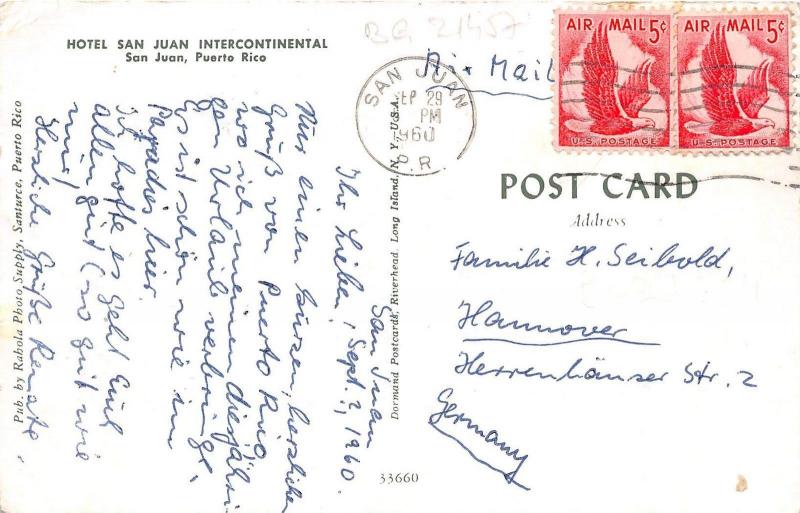 HOTEL SAN JUAN INTERCONTINENTAL
San Juan, Puerto Rico
BG 21457
Air Mail
SAN JUAN
SEP 29
PM
1960
P.R.
AIR MAIL 5¢
U.S. POSTAGE
AIR MAIL 5¢
U.S. POSTAGE
San Juan
Sept. 2, 1960.
Ihr Lieben,
Nur einen kurzen, herzlichen
Gruß von Puerto Rico,
wo ich meinen diesjähri-
gen Urlaub verbringe.
Es ist schön wie im
Paradies hier.
Ich hoffe es geht Euch
allen gut (so gut wie
mir)
Herzliche Grüße Renate.
Pub. by Rahola Photo Supply, Santurce, Puerto Rico
Dormand Postcards, Riverhead, Long Island, N. Y., U.S.A.
33660
POST CARD
Address
Familie H. Seibold,
Hannover
Herrenhäuser Str. 2
Germany